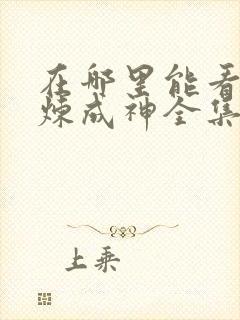 在哪里能看
炼成神全集
上乘